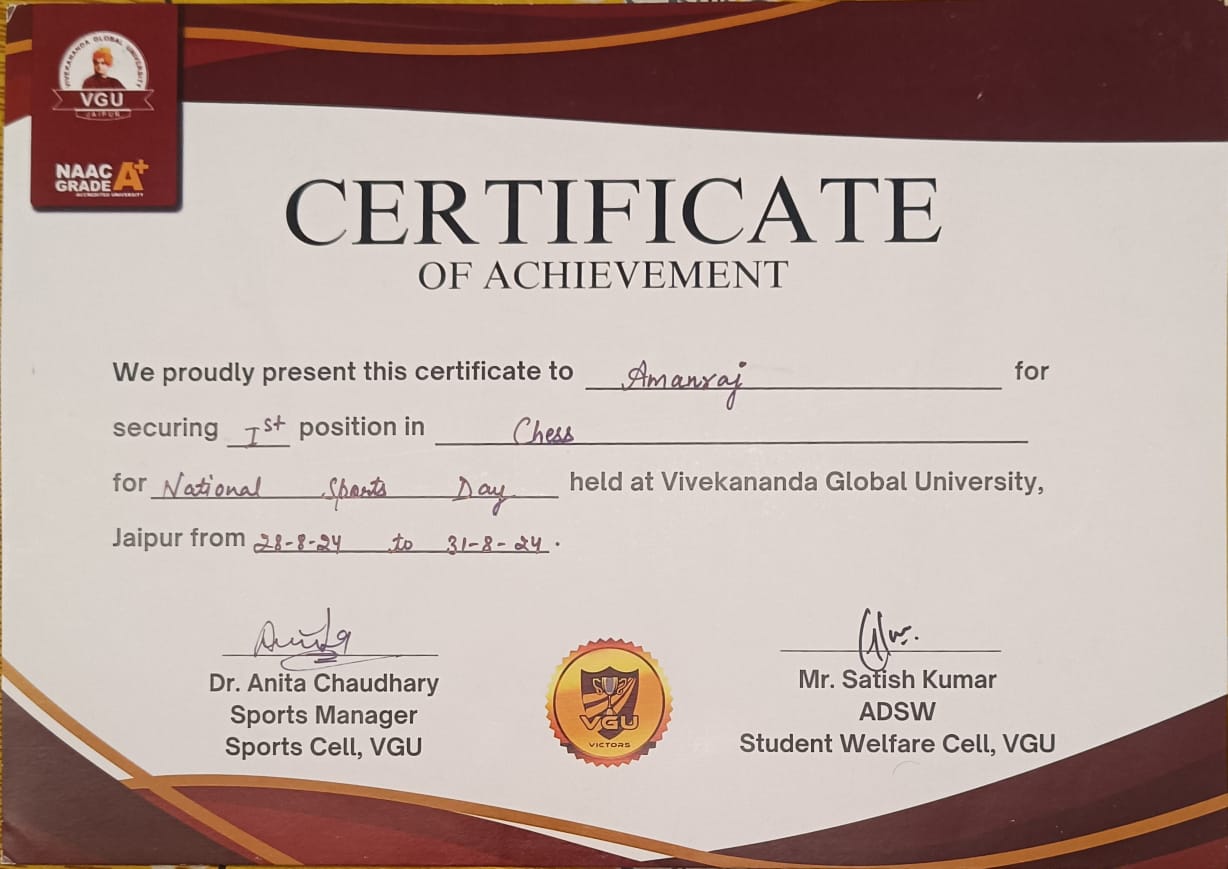 VIVEKANANDA GLOBAL UNIVERSITY
VGU
JAIPUR
NAAC
GRADE A+
ACCREDITED UNIVERSITY
CERTIFICATE
OF ACHIEVEMENT
We proudly present this certificate to Amanraj for
securing Ist position in Chess
for National Sports Day held at Vivekananda Global University,
Jaipur from 28-8-24 to 31-8-24.
Anita
Dr. Anita Chaudhary
Sports Manager
Sports Cell, VGU
VGU
VICTORS
Mr. Satish Kumar
ADSW
Student Welfare Cell, VGU